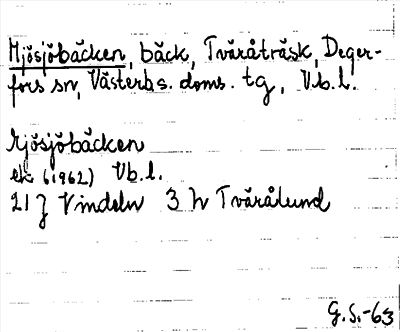 Mjösjöbäcken, bäck, Tväråträsk, Deger-
fors sn, Västerb s. doms. tg, Vb. l.
Mjösjöbäcken
ek (1962) Vb. l.
21 J Vindeln 3 h Tvärålund
G.S.-63